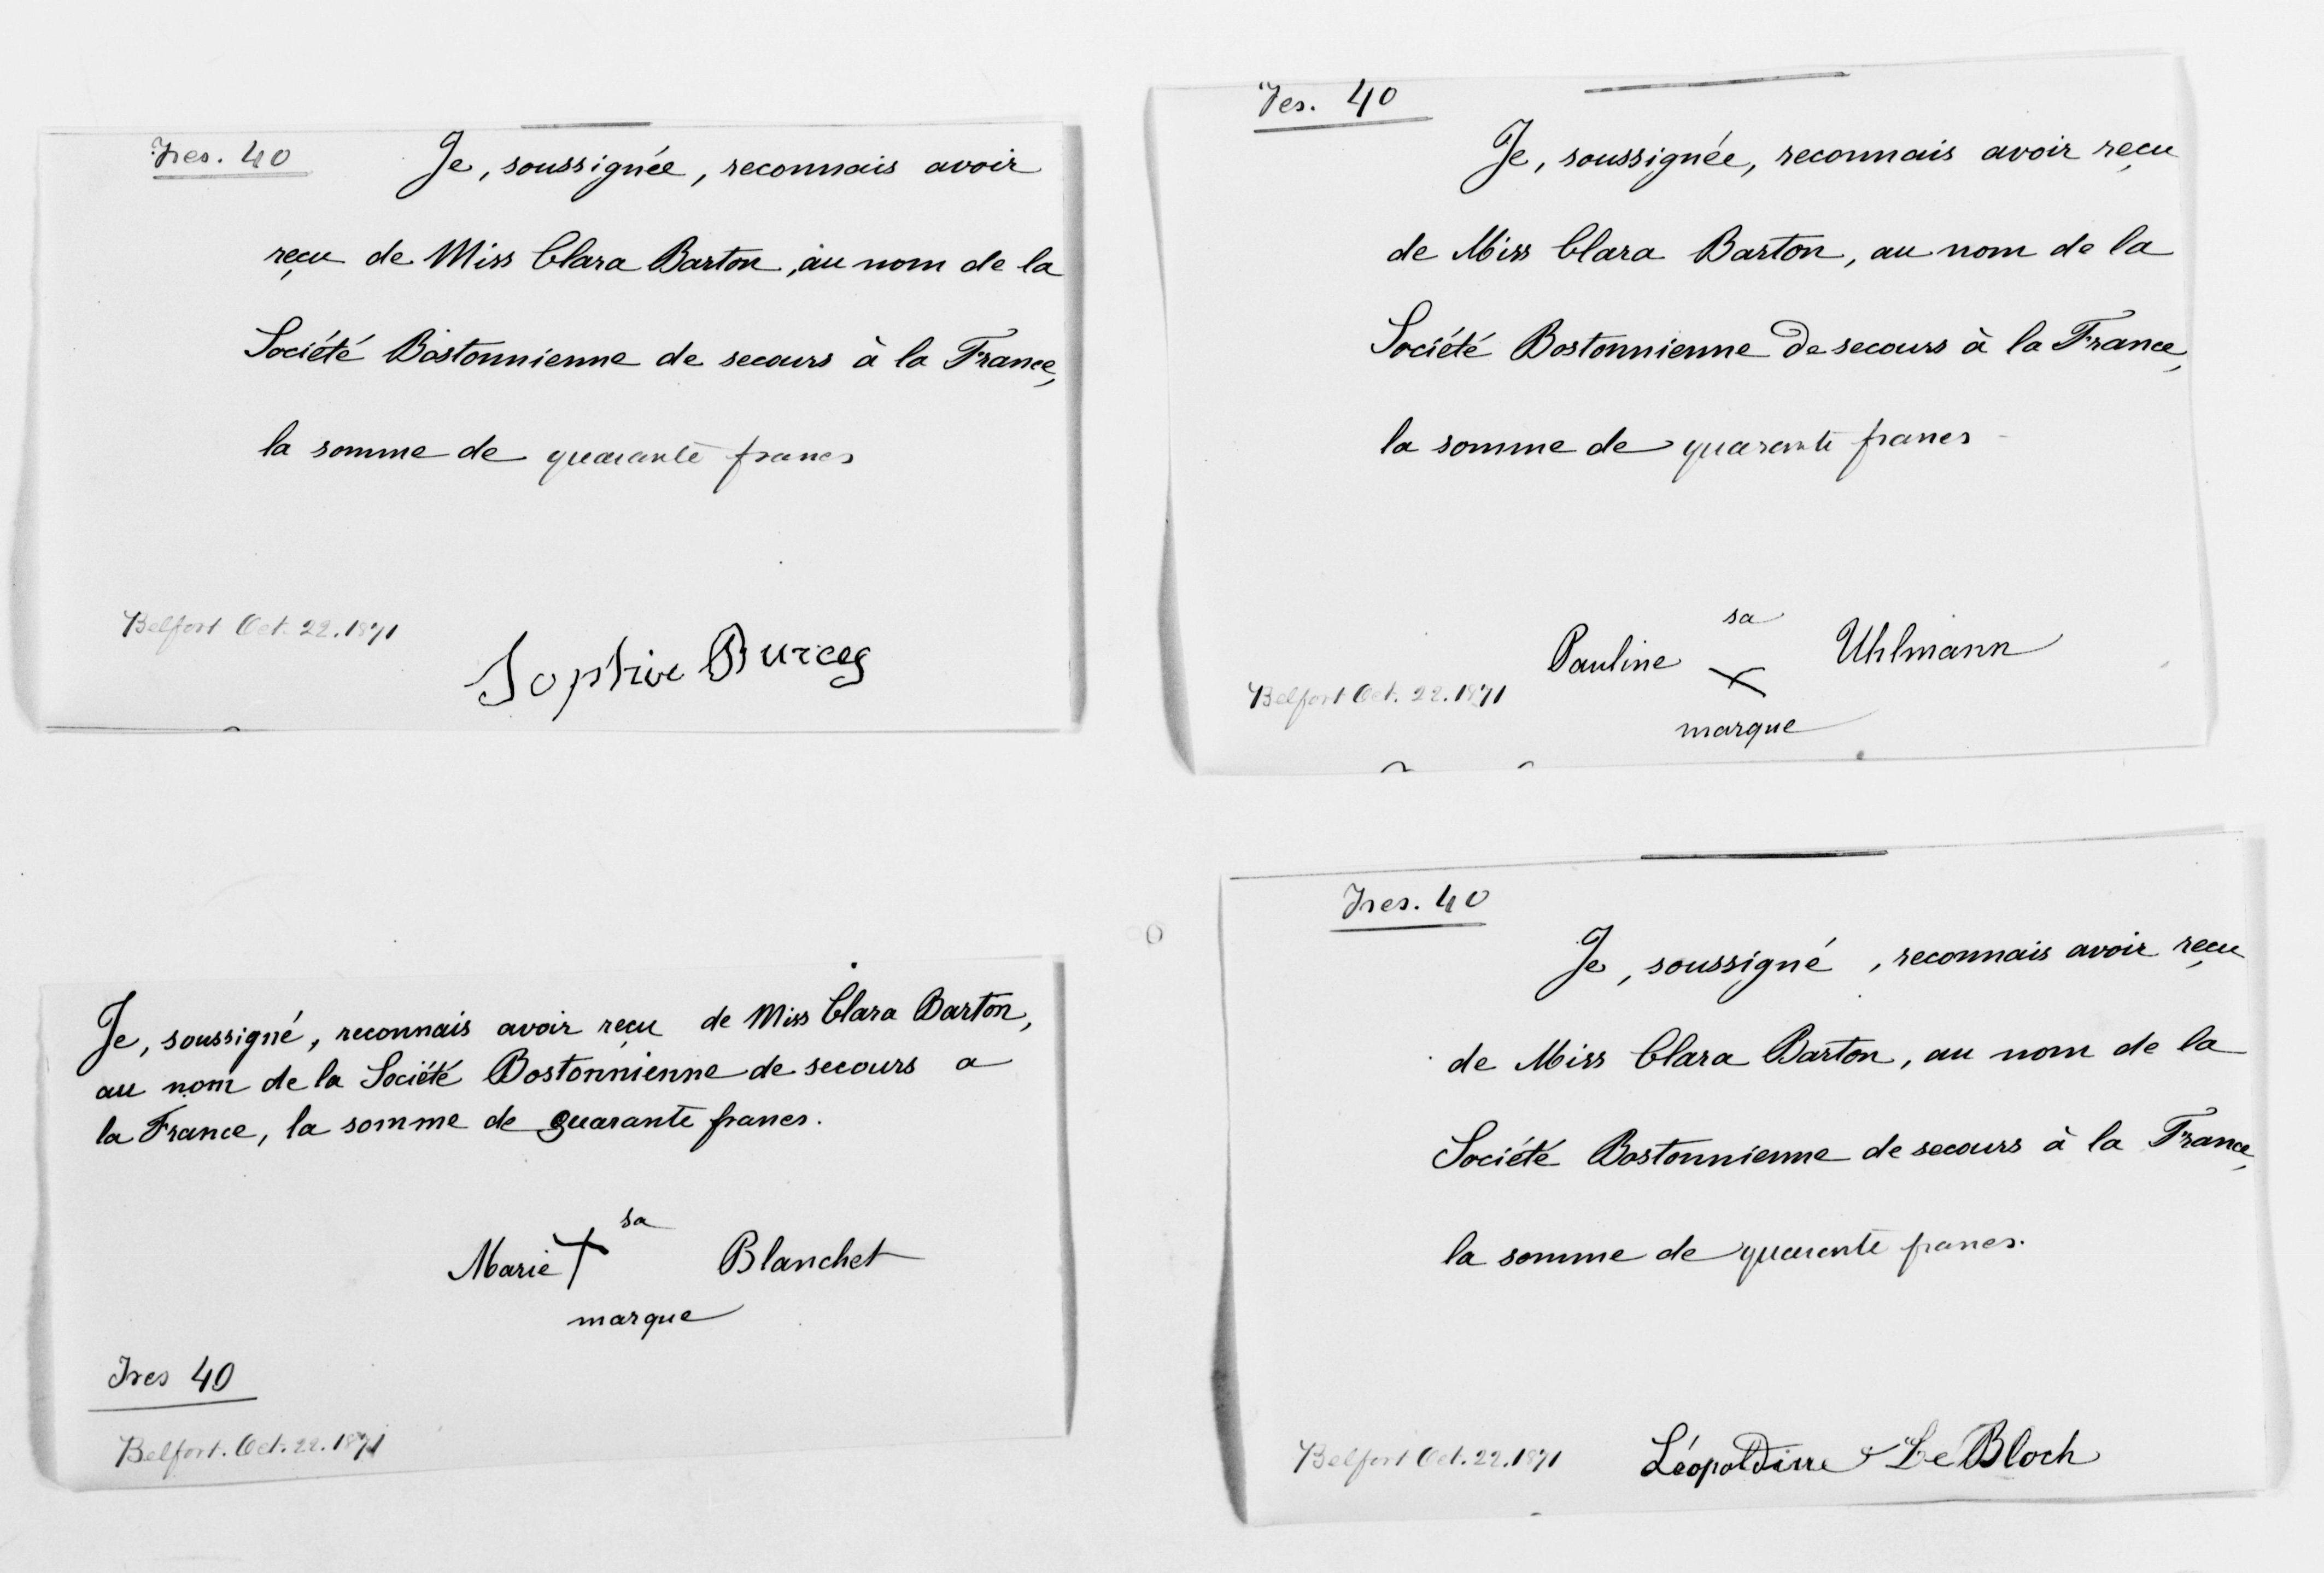 Frcs. 40
Je, soussignée, reconnais avoir
reçu de Miss Clara Barton, au nom de la
Société Bostonnienne de secours à la France,
la somme de quarante francs
Belfort Oct. 22. 1871
Sophie
Fcs. 40
Je, soussignée, reconnais avoir reçu
de Miss Clara Barton, au nom de la
Société Bostonnienne de secours à la France,
la somme de quarante francs
sa
Pauline x Uhlmann
Belfort Oct. 22. 1871
marque
Je, soussigné, reconnais avoir reçu de Miss Clara Barton,
au nom de la Société Bostonnienne de secours a
la France, la somme de quarante francs.
sa
Marie x Blanchet
marque
Frcs 40
Belfort. Oct. 22. 1871
Frcs. 40
Je, soussigné, reconnais avoir reçu
de Miss Clara Barton, au nom de la
Société Bostonnienne de secours à la France,
la somme de quarante francs.
Belfort Oct. 22. 1871 Le Bloch